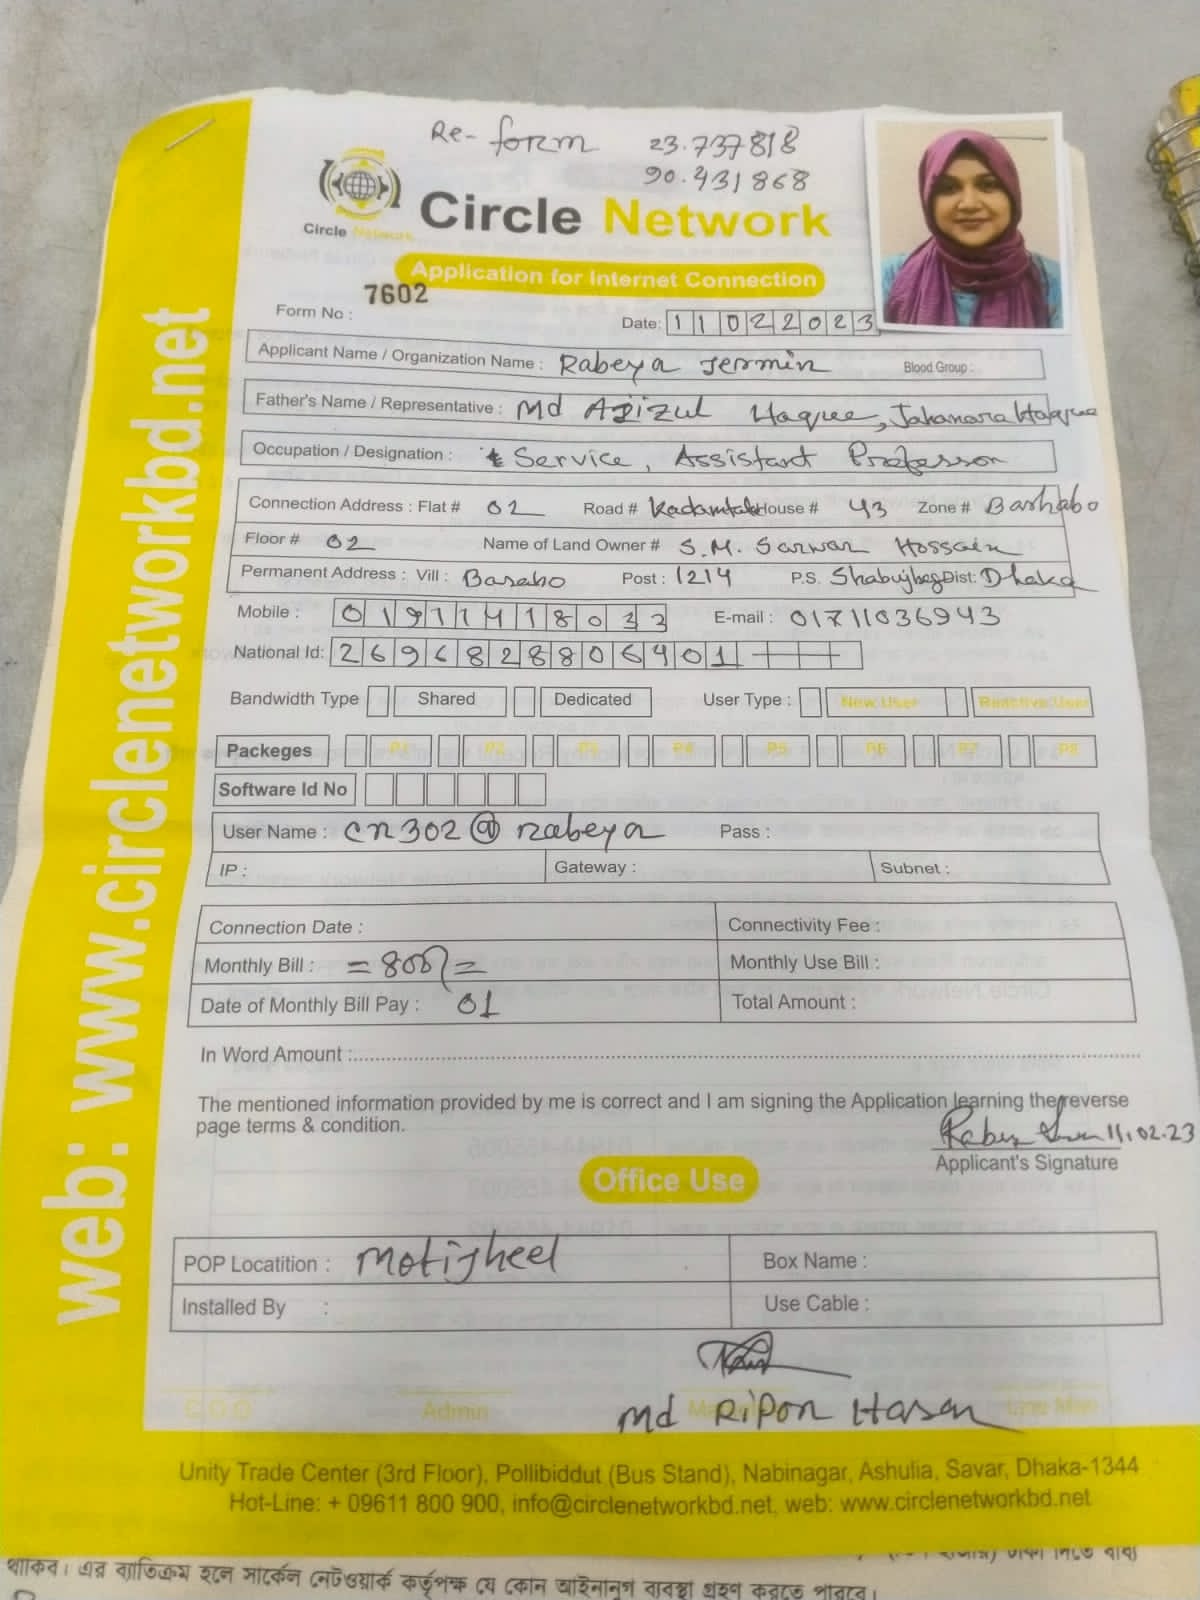 Re- form 23.737818
90.431868
Circle Network
Circle Network
Application for Internet Connection
7602
Form No :
Date: 11022023
Applicant Name / Organization Name : Rabeya Jermin Blood Group :
Father's Name / Representative : Md Azizul Haque, Jahanara Haque
Occupation / Designation : Service, Assistant Professor
Connection Address : Flat # 02 Road # Kadamtala House # 43 Zone # Bashabo
Floor # 02 Name of Land Owner # S.M. Sarwar Hossain
Permanent Address : Vill : Basabo Post : 1214 P.S. Shabujbag Dist: Dhaka
Mobile : E-mail : 01711036943
National Id: 2696828806401
Bandwidth Type Shared Dedicated User Type : New User Reactive User
Packeges P1 P2 P3 P4 P5 P6 P7 P8
Software Id No
User Name : cn302@rabeya Pass :
IP : Gateway : Subnet :
Connection Date : Connectivity Fee :
Monthly Bill : =৪০০/= Monthly Use Bill :
Date of Monthly Bill Pay : 01 Total Amount :
In Word Amount :
The mentioned information provided by me is correct and I am signing the Application learning the reverse
page terms & condition.
11.02.23
Applicant's Signature
Office Use
POP Locatition : Motijheel Box Name :
Installed By : Use Cable :
C.O.O Admin Line Man
Md Ripon Hasan
Unity Trade Center (3rd Floor), Pollibiddut (Bus Stand), Nabinagar, Ashulia, Savar, Dhaka-1344
Hot-Line: + 09611 800 900, info@circlenetworkbd.net, web: www.circlenetworkbd.net
web: www.circlenetworkbd.net
থাকিব। এর ব্যাতিক্রম হলে সার্কেল নেটওয়ার্ক কর্তৃপক্ষ যে কোন আইনানুগ ব্যবস্থা গ্রহণ করতে পারবে।